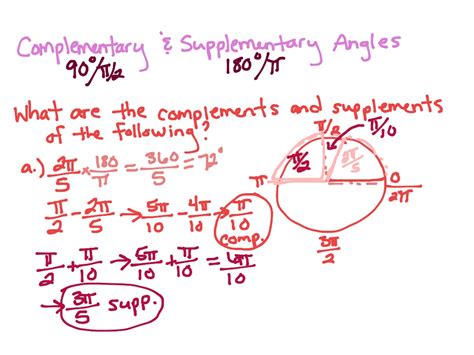 Complementary & Supplementary Angles
90°/π/2 180°/π
What are the complements and supplements
of the following?
a.) 2π/5 × 180/π = 360/5 = 72°
π/2 - 2π/5 → 5π/10 - 4π/10 → π/10 comp.
π/2 + π/10 → 5π/10 + π/10 = 6π/10
→ 3π/5 supp.
π/2 π/10
π/2 3π/5
π 0
2π
3π/2